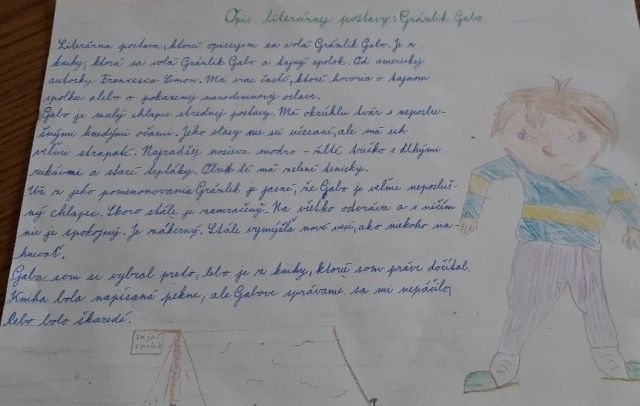 Opis literárnej postavy: Grázlik Gabo
Literárna postava, ktorú opisujem sa volá Grázlik Gabo. Je z
knihy, ktorá sa volá Grázlik Gabo a tajný spolok. Od americkej
autorky Francesca Simon. Má viac častí, ktoré hovoria o tajnom
spolku alebo o pokazenej narodeninovej oslave.
Gabo je malý chlapec strednej postavy. Má okrúhlu tvár s neposlu-
šnými hnedými očami. Jeho vlasy nie sú učesané, ale má ich
veľmi strapaté. Najradšej nosieva modro-žlté tričko s dlhými
rukávmi a staré tepláky. Obuté má zelené tenisky.
Už z jeho pomenovania Grázlik je jasné, že Gabo je veľmi neposluš-
ný chlapec. Skoro stále je zamračený. Na všetko odvráva a s ničím
nie je spokojný. Je zákerný. Stále vymýšľa nové veci, ako niekoho na-
hnevať.
Gaba som si vybral preto, lebo je z knihy, ktorú som práve dočítal.
Kniha bola napísaná pekne, ale Gabove správanie sa mi nepáčilo,
lebo bolo škaredé.
Tajný
spolok